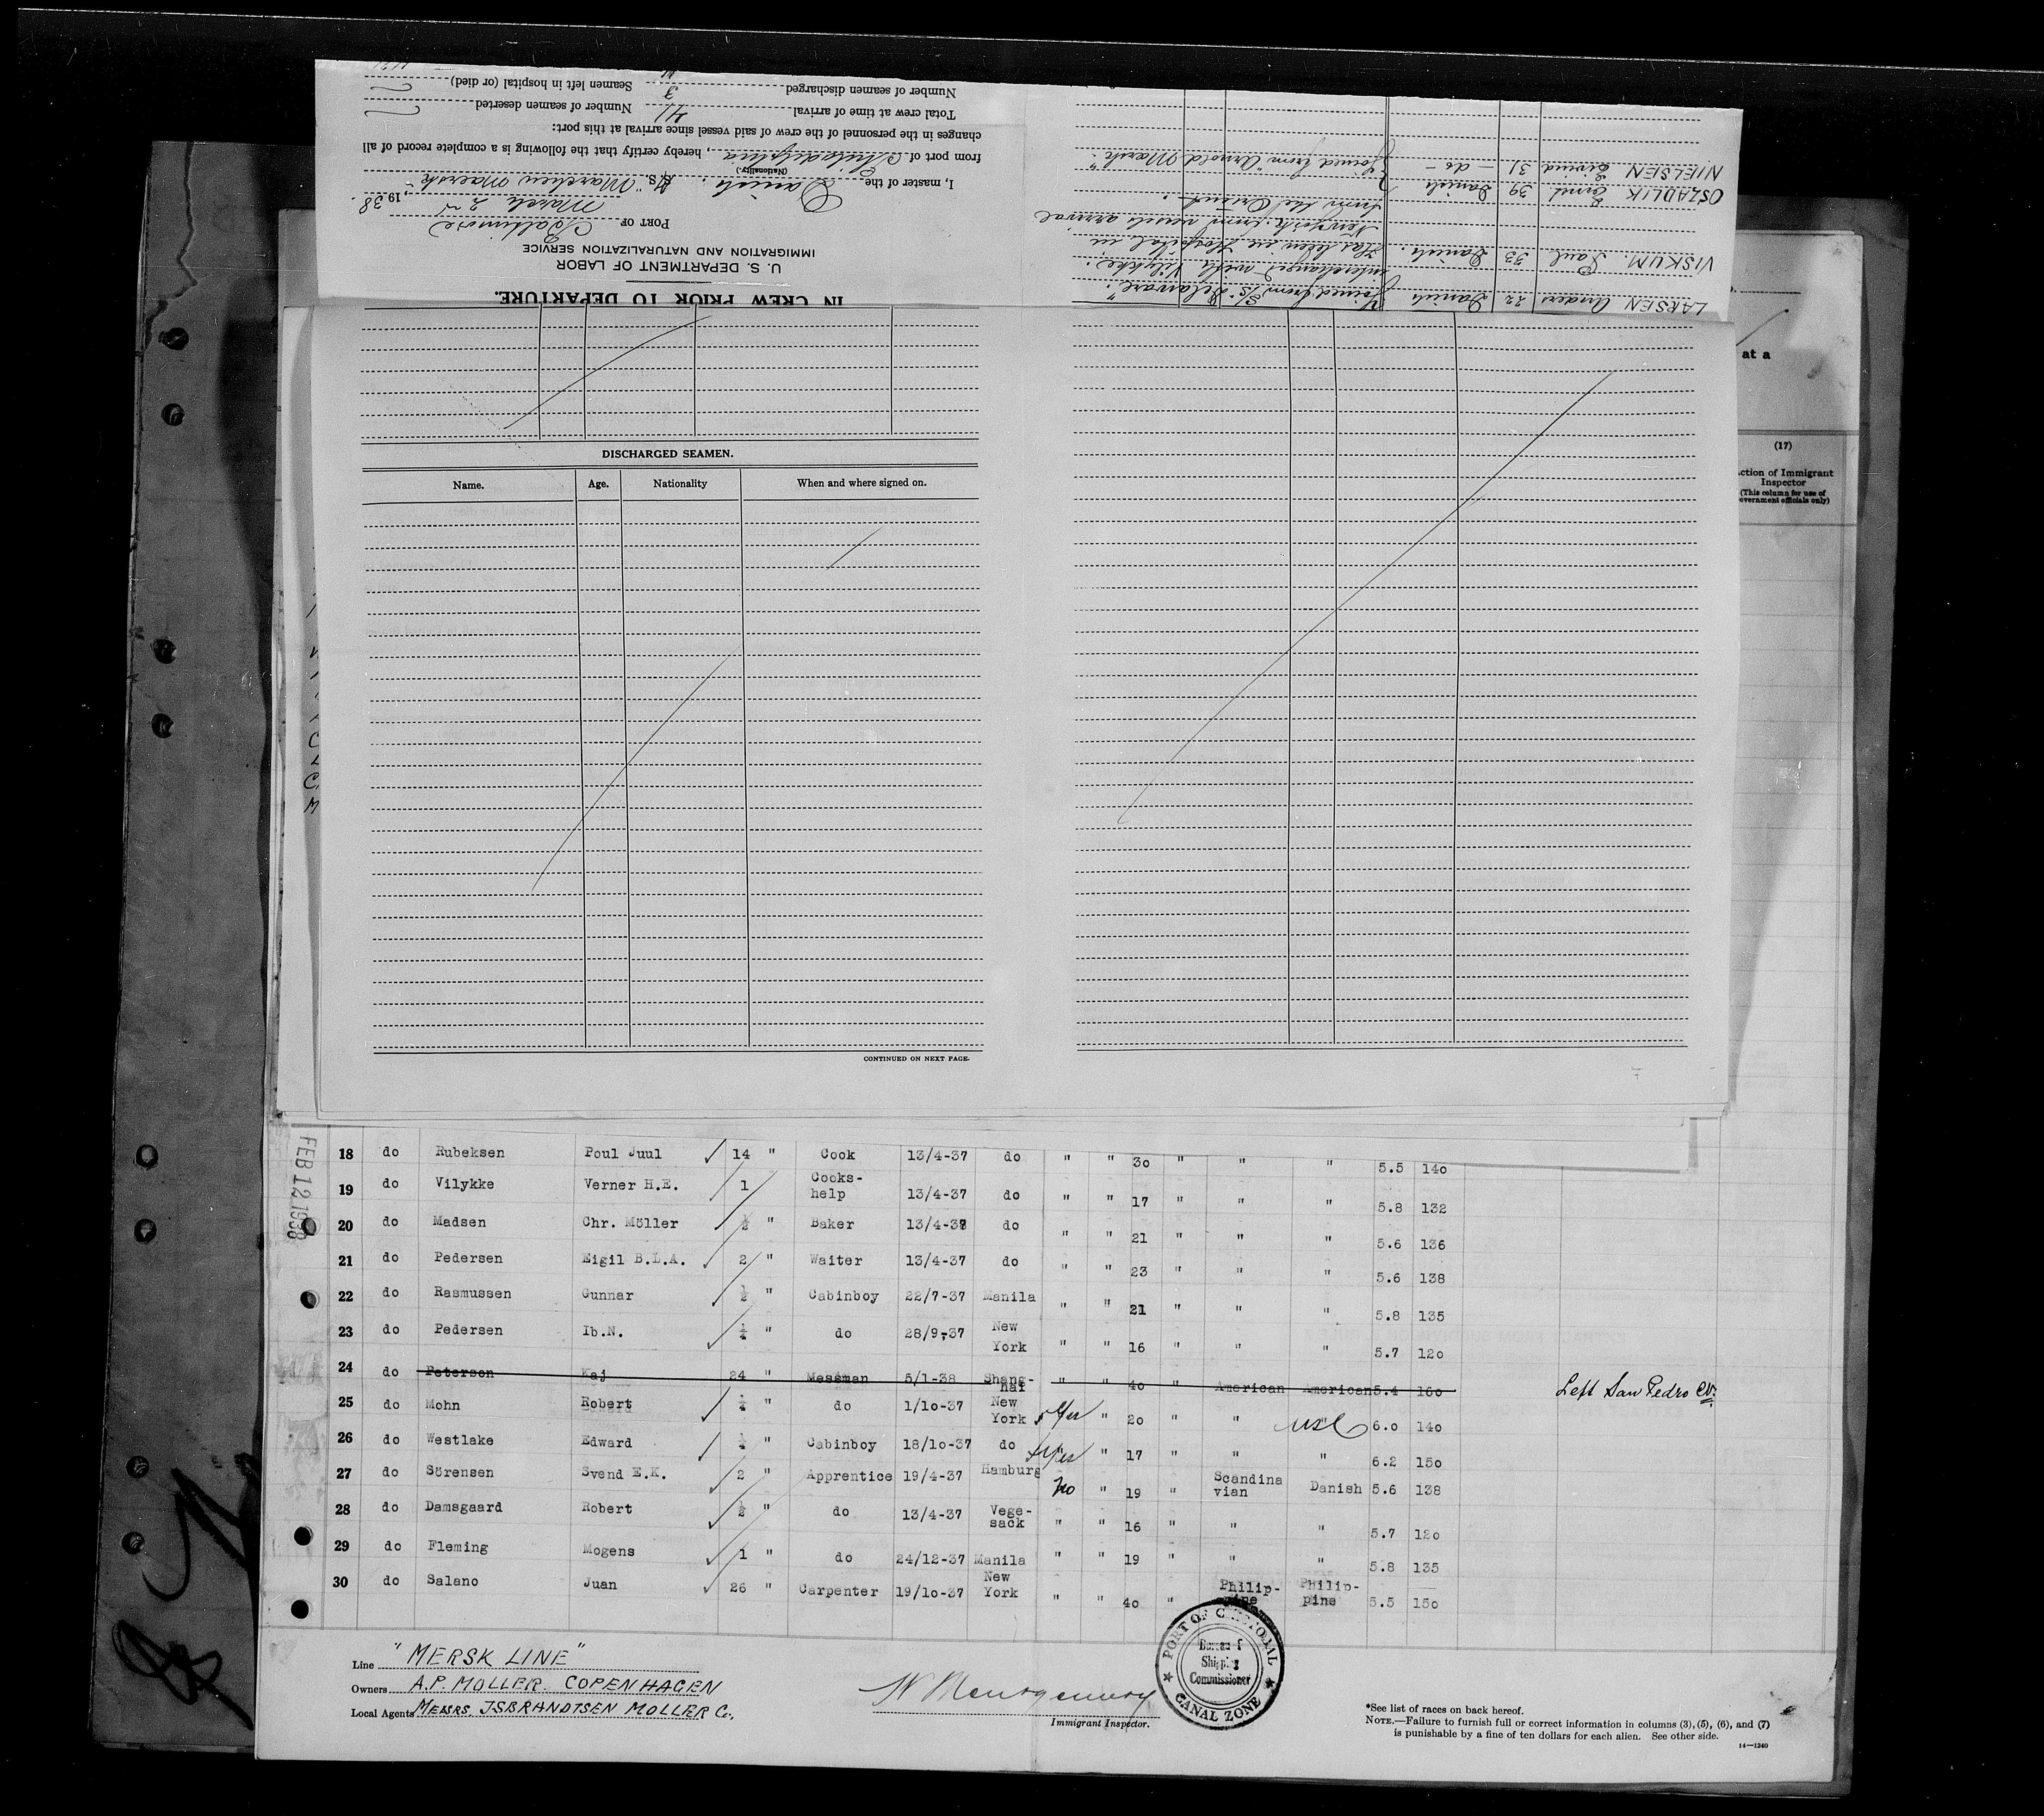 IN CREW PRIOR TO DEPARTURE.
U. S. DEPARTMENT OF LABOR
IMMIGRATION AND NATURALIZATION SERVICE
PORT OF Baltimore
March 2nd, 1938.
I, master of the Danish M/S "Marchen Maersk"
(Nationality.)
from port of Philadelphia, hereby certify that the following is a complete record of all
changes in the personnel of the crew of said vessel since arrival at this port:
Total crew at time of arrival 41 Number of seamen deserted
Number of seamen discharged 3 Seamen left in hospital (or died)
LARSEN Anders 22 Danish Joined from S/S "Delaware".
interchanged with Vilykke.
VISKUM Paul 33 Danish. Has been in Hospital in
New York from vessels arrival
from the Orient.
OSZADLIK Ernst 39 Danish
NIELSEN Eivind 31 - do - Joined from "Arnold Mærsk".
DISCHARGED SEAMEN.
Name. Age. Nationality When and where signed on.
CONTINUED ON NEXT PAGE.
at a
(17)
ction of Immigrant
Inspector
(This column for use of
overnment officials only)
FEB 12 1938
18 do Rubeksen Poul Juul 14 " Cook 13/4-37 do " " 30 " " " 5.5 140
19 do Vilykke Verner H.E. 1 Cooks-help 13/4-37 do " " 17 " " " 5.8 132
20 do Madsen Chr. Möller ½ " Baker 13/4-38 do " " 21 " " " 5.6 136
21 do Pedersen Eigil B.L.A. 2 " Waiter 13/4-37 do " " 23 " " " 5.6 138
22 do Rasmussen Gunnar ½ " Cabinboy 22/7-37 Manila " " 21 " " " 5.8 135
23 do Pedersen Ib.N. ¼ " do 28/9-37 New York " " 16 " " " 5.7 120
24 do Peterson Kaj 24 " Messman 5/1-38 Shang-hai " " 40 " American American 5.4 160 Left San Pedro
25 do Mohn Robert ¼ " do 1/10-37 New York Yes " 20 " " USC 6.0 140
26 do Westlake Edward ¼ " Cabinboy 18/10-37 do Yes " 17 " " " 6.2 150
27 do Sörensen Svend E.K. 2 " Apprentice 19/4-37 Hamburg No " 19 " Scandinavian Danish 5.6 138
28 do Damsgaard Robert ½ " do 13/4-37 Vege-sack " " 16 " " " 5.7 120
29 do Fleming Mogens 1 " do 24/12-37 Manila " " 19 " " 5.8 135
30 do Salano Juan 26 " Carpenter 19/10-37 New York " " 40 " Philip-pine Philip-pine 5.5 150
Line "MERSK LINE"
Owners A.P. MOLLER COPENHAGEN
Local Agents MESSRS. ISBRANDTSEN MOLLER Co.,
W Montgomery
Immigrant Inspector.
PORT OF CRISTOBAL
Bureau of
Shipping
Commissioner
CANAL ZONE
*See list of races on back hereof.
NOTE.—Failure to furnish full or correct information in columns (3), (5), (6), and (7)
is punishable by a fine of ten dollars for each alien. See other side.
14—1240